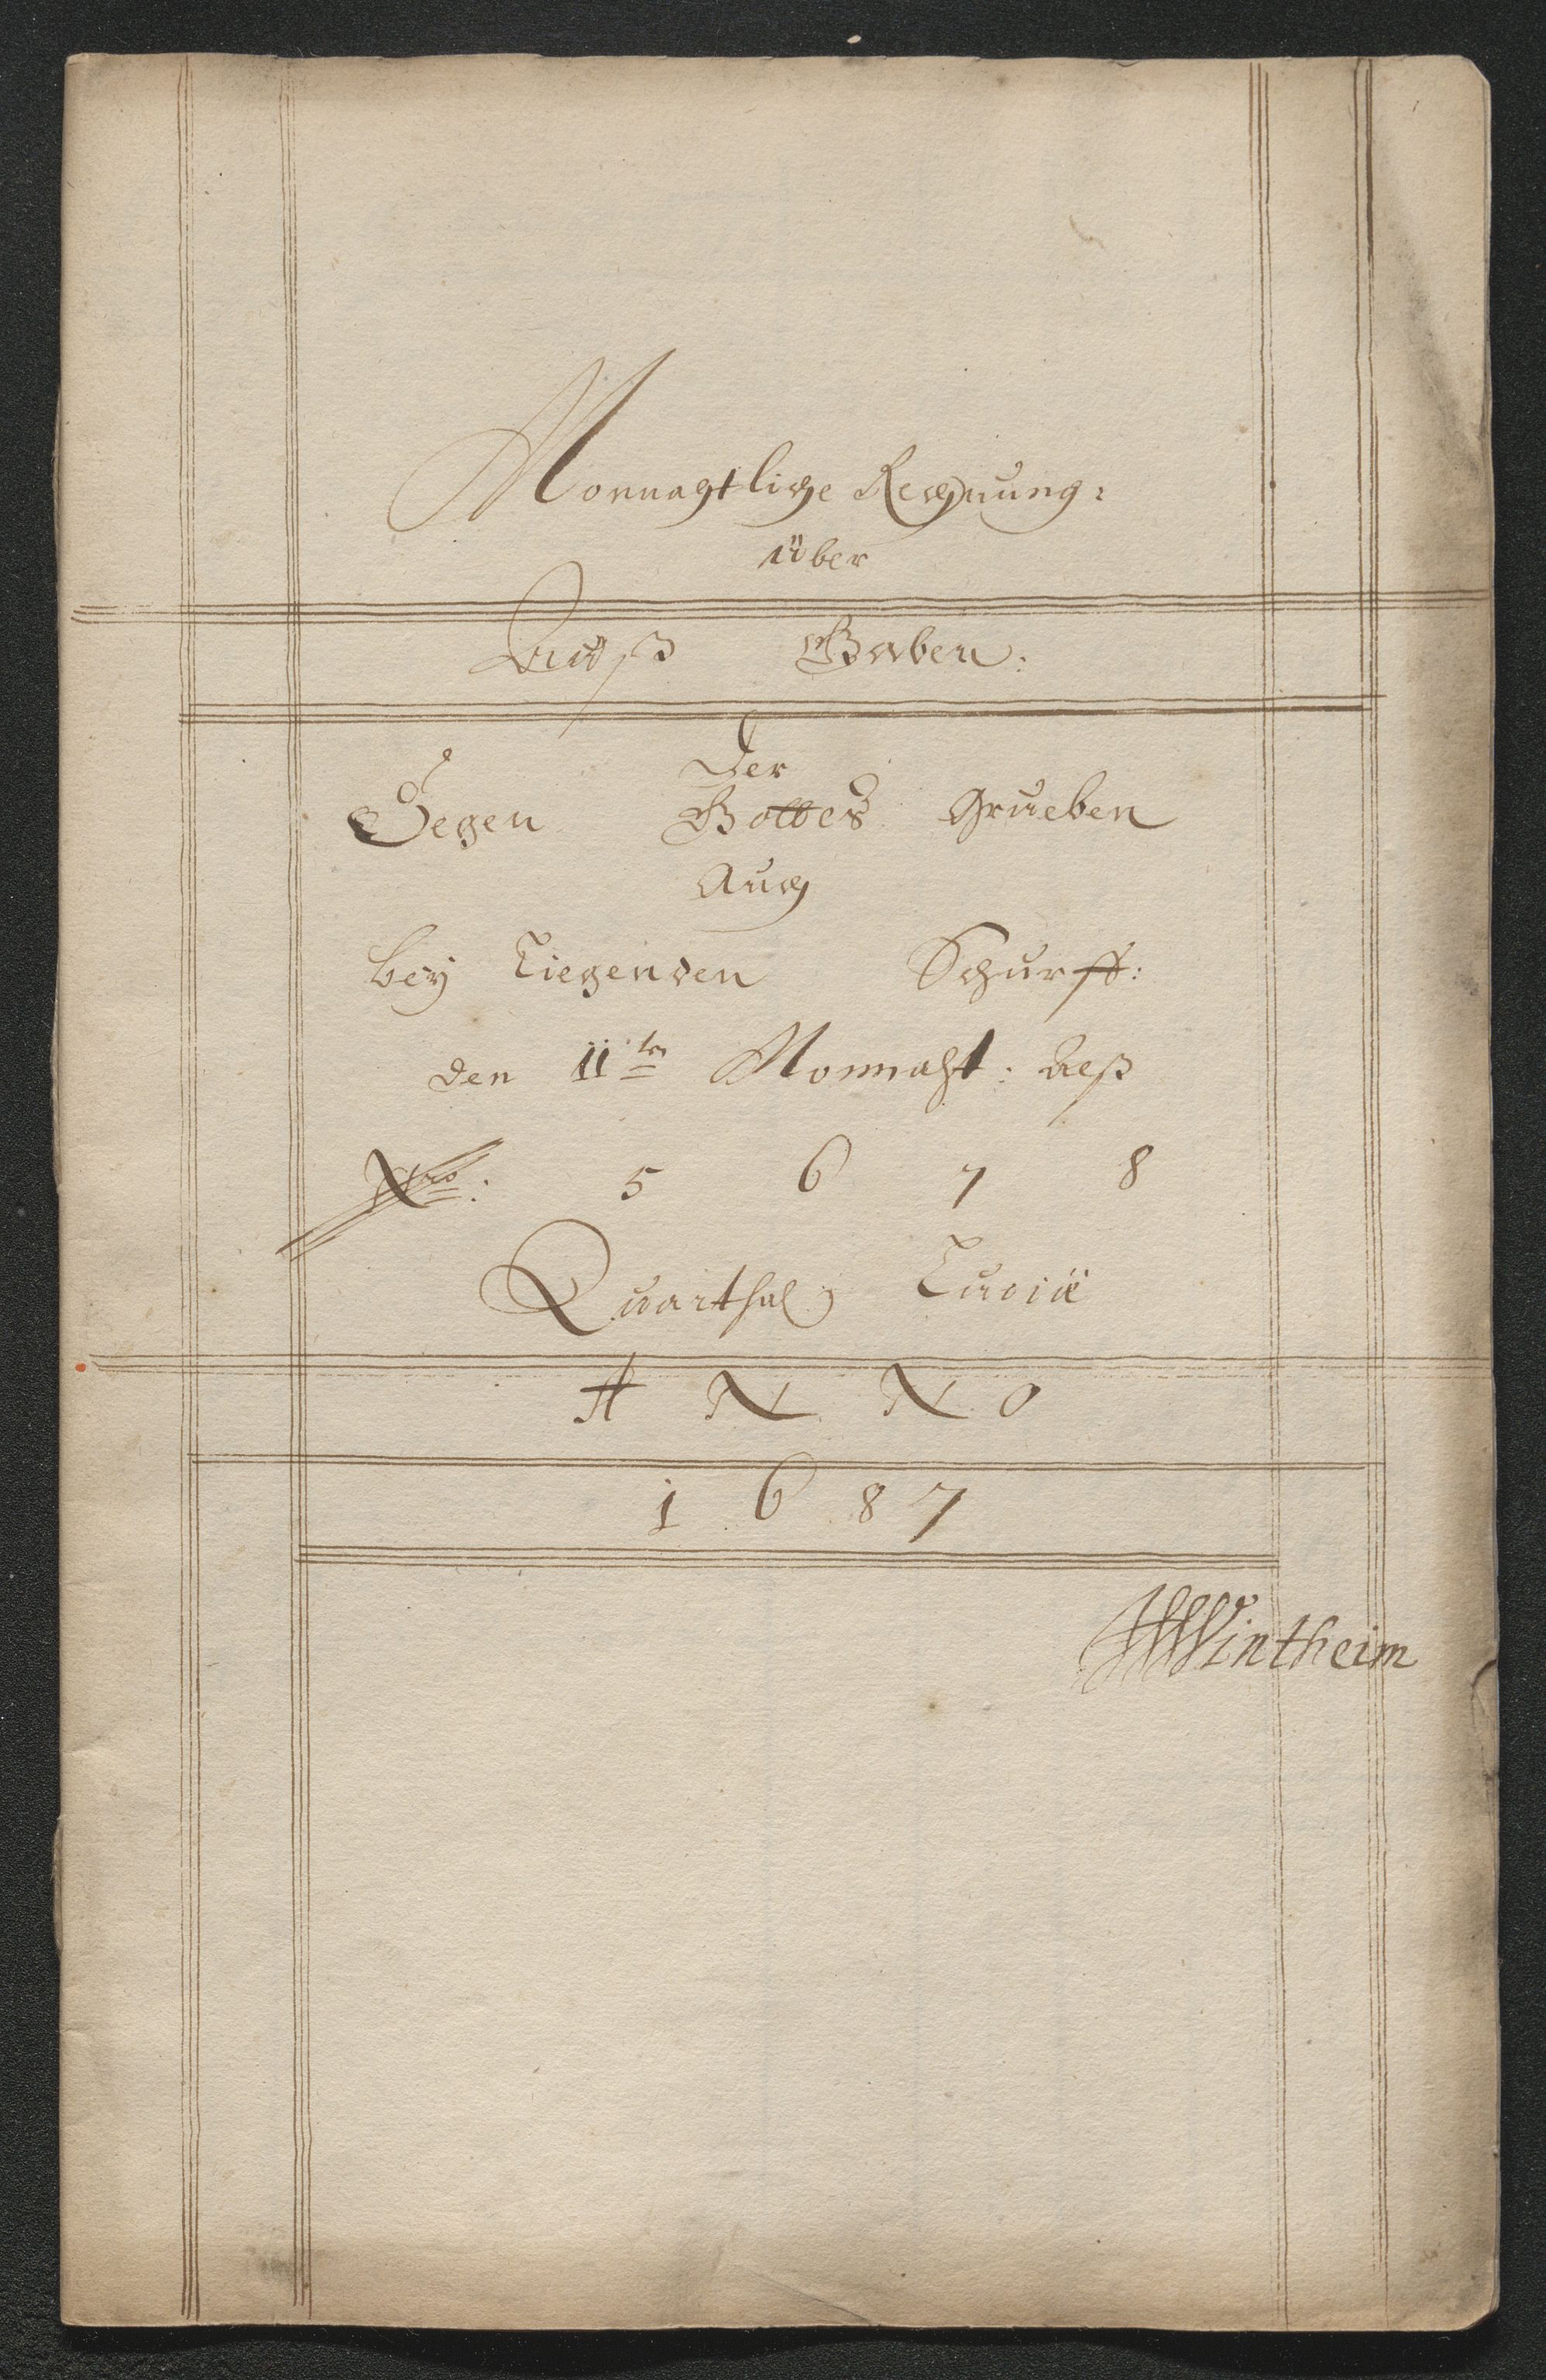 Monnahtliche Rechnung:
über
Auß Gaben:
Der
Segen Gottes Grueben
Auch
bey Liegenden Schurff:
den 11ten Monnaht: deß
Nro: 5 6 7 8
Quarthal Luciæ
ANNO
1687
HWintheim